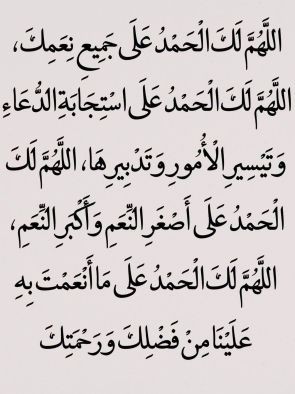 اللَّهُمَّ لَكَ الْحَمْدُ عَلَى جَمِيعِ نِعَمِكَ،
اللَّهُمَّ لَكَ الْحَمْدُ عَلَى اسْتِجَابَةِ الدُّعَاءِ
وَتَيْسِيرِ الْأُمُورِ وَتَدْبِيرِهَا، اللَّهُمَّ لَكَ
الْحَمْدُ عَلَى أَصْغَرِ النِّعَمِ وَأَكْبَرِ النِّعَمِ،
اللَّهُمَّ لَكَ الْحَمْدُ عَلَى مَا أَنْعَمْتَ بِهِ
عَلَيْنَا مِنْ فَضْلِكَ وَرَحْمَتِكَ